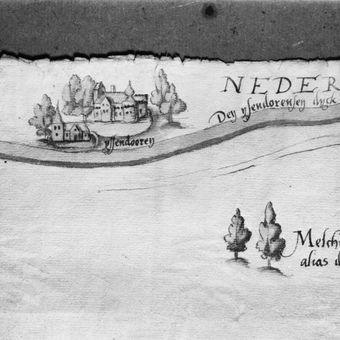 NEDER
Den yssendorensen dyck
yssendooren
Melch
alias